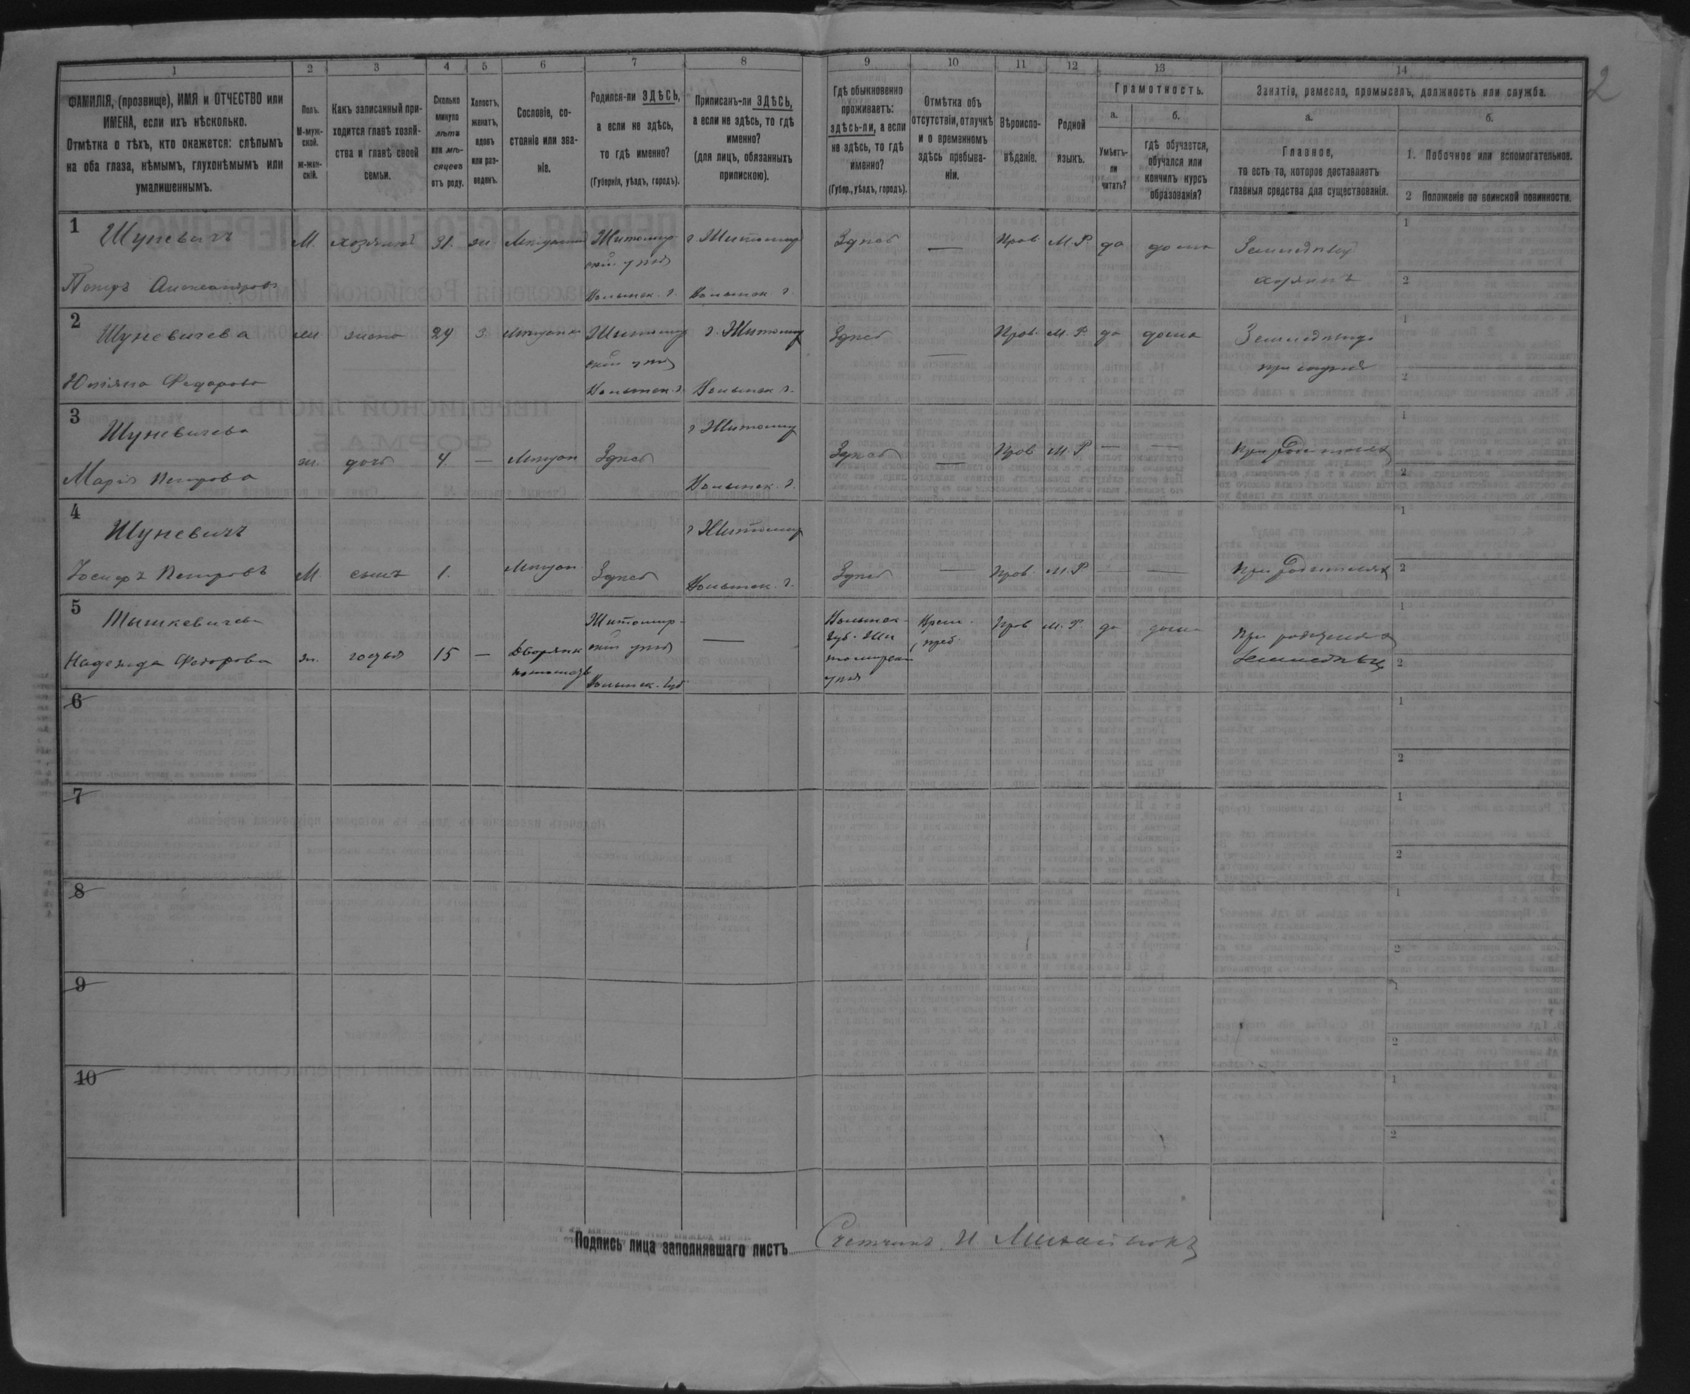 2
1 2 3 4 5 6 7 8 9 10 11 12 13 14
ФАМИЛІЯ, (прозвище), ИМЯ и ОТЧЕСТВО или
ИМЕНА, если ихъ нѣсколько.
Отмѣтка о тѣхъ, кто окажется: слѣпымъ
на оба глаза, нѣмымъ, глухонѣмымъ или
умалишеннымъ.
Полъ.
М-муж-
ской.
ж-жен-
скій.
Какъ записанный при-
ходится главѣ хозяй-
ства и главѣ своей
семьи.
Сколько
минуло
лѣтъ
или мѣ-
сяцевъ
отъ роду.
Холостъ,
женатъ,
вдовъ
или раз-
веденъ.
Сословіе, со-
стояніе или зва-
ніе.
Родился-ли ЗДѢСЬ,
а если не здѣсь,
то гдѣ именно?
(Губернія, уѣздъ, городъ).
Приписанъ-ли ЗДѢСЬ,
а если не здѣсь, то гдѣ
именно?
(для лицъ, обязанныхъ
припискою).
Гдѣ обыкновенно
проживаетъ:
здѣсь-ли, а если
не здѣсь, то гдѣ
именно?
(Губер., уѣздъ, городъ).
Отмѣтка объ
отсутствіи, отлучкѣ
и о временномъ
здѣсь пребыва-
ніи.
Вѣроиспо-
вѣданіе.
Родной
языкъ.
Грамотность.
а.
Умѣетъ-
ли
читать?
б.
Гдѣ обучается,
обучался или
кончилъ курсъ
образованія?
Занятія, ремесло, промыселъ, должность или служба.
а.
Главное,
то есть то, которое доставляетъ
главныя средства для существованія.
б.
1. Побочное или вспомогательное.
2 Положеніе по воинской повинности.
1
Шуневичъ М хозяинъ 31. ж. Мѣщанин Житомир- г Житомир Здѣсь — Прав М.Р. да дома Земледѣлец 1
ский уѣзд
Петръ Александровъ Волынск. г. Волынск г. хозяинъ 2
2
Шуневичева ж жена 29 З. Мѣщанка Житомир г. Житомир Здѣсь — Прав М.Р. да дома Земледѣлец 1
ский уѣзд при мужѣ
Юліяна Федорова Волынск г. Волынск г. 2
3
Шуневичева г Житомир 1
Марія Петрова ж. дочь 4. — Мѣщан Здѣсь Волынск. г. Здѣсь — Прав М.Р — — При Родителях 2
4
Шуневичъ г Житомир 1
Іосифъ Петровъ М сынъ 1. Мѣщан Здѣсь Волынск. г. Здѣсь — Прав М.Р — — При Родителях 2
5
Тышкевичева Житомир- — Волынск. Врем. Прав М.Р. да дома При 1
Надежда Федорова ж. гостья 15 — Дворянк ский уѣзд Губ. Жи преб
потомств Волынск. Губ томирский земледѣлец 2
уѣзд
6 1
2
7 1
2
8 1
2
9 1
2
10 1
2
Подпись лица заполнявшаго листъ Счетчикъ И